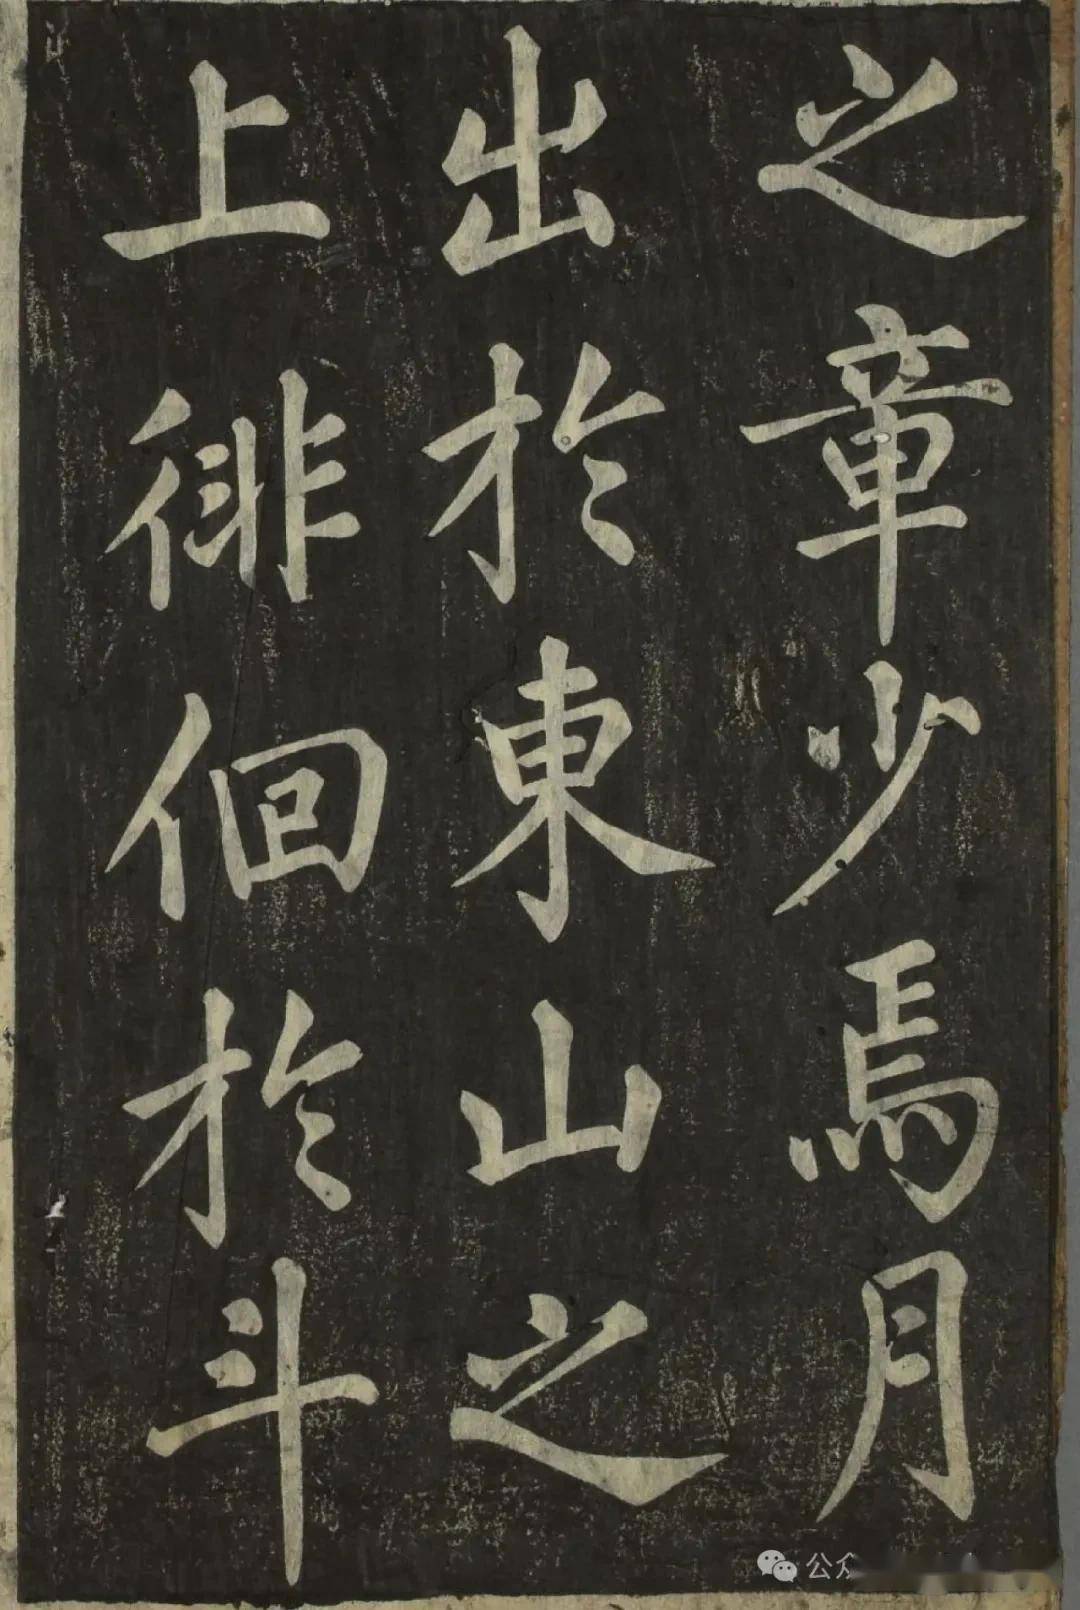 之章少焉月
出於東山之
上徘徊於斗
公众